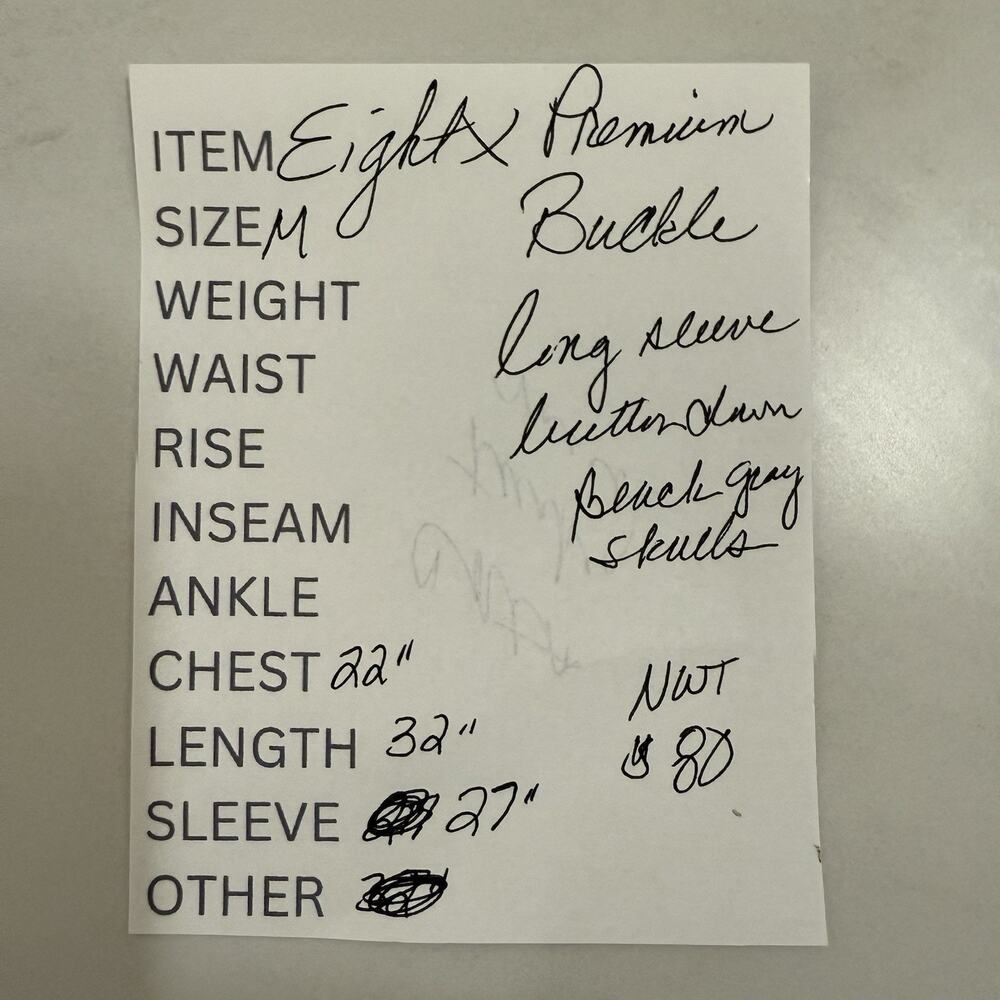 ITEM EightX Premium
SIZE M Buckle
WEIGHT
long sleeve
WAIST
button down
RISE
Black gray
INSEAM
skulls
ANKLE
CHEST 22" NWT
LENGTH 32" $ 80
SLEEVE 27"
OTHER